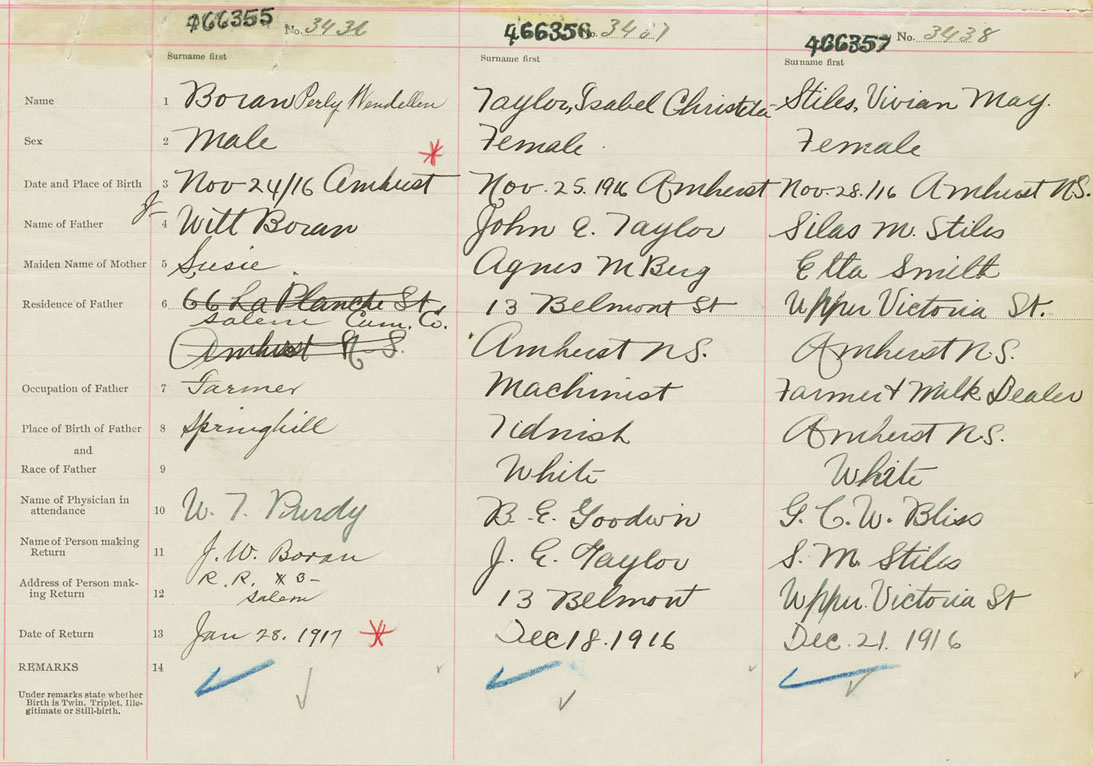 466355 No. 3436 466356 No. 3437 466357 No. 3438
Surname first Surname first Surname first
Name 1 Boran Perly Wendellen Taylor, Isabel Stiles, Vivian May.
Sex 2 Male Female. Female
Date and Place of Birth 3 Nov 24/16 Amherst Nov. 25. 1916 Amherst Nov. 28./16 Amherst N.S.
Name of Father 4 J- Witt Boran John E. Taylor Silas M. Stiles
Maiden Name of Mother 5 Susie. Agnes M Berg Etta Smith
Residence of Father 6 66 La Planche St. 13 Belmont St Upper Victoria St.
Salem Cum. Co.
Amherst N.S. Amherst N.S. Amherst N.S.
Occupation of Father 7 Farmer Machinist Farmer & Milk Dealer
Place of Birth of Father 8 Springhill Tidnish Amherst N.S.
and
Race of Father 9 White White
Name of Physician in attendance 10 W. T. Purdy B. E. Goodwin G. C. W. Bliss
Name of Person making Return 11 J. W. Boran J. E. Taylor S. M. Stiles
R. R. # 3-
Address of Person making Return 12 Salem 13 Belmont Upper Victoria St
Date of Return 13 Jan 28. 1917 Dec 18. 1916 Dec. 21. 1916
REMARKS 14
Under remarks state whether
Birth is Twin, Triplet, Ille-
gitimate or Still-birth.